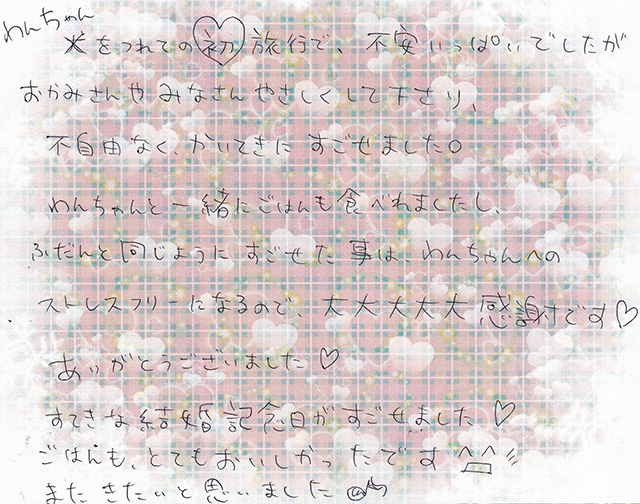 わんちゃん
犬をつれての初旅行で、不安いっぱいでしたが
おかみさんやみなさんやさしくして下さり、
不自由なく、かいてきにすごせました。
わんちゃんと一緒にごはんも食べれましたし、
ふだんと同じようにすごせた事は、わんちゃんへの
ストレスフリーになるので、大大大大大感謝です♡
ありがとうございました♡
すてきな結婚記念日がすごせました♡
ごはんも、とてもおいしかったです^□^
またきたいと思いました